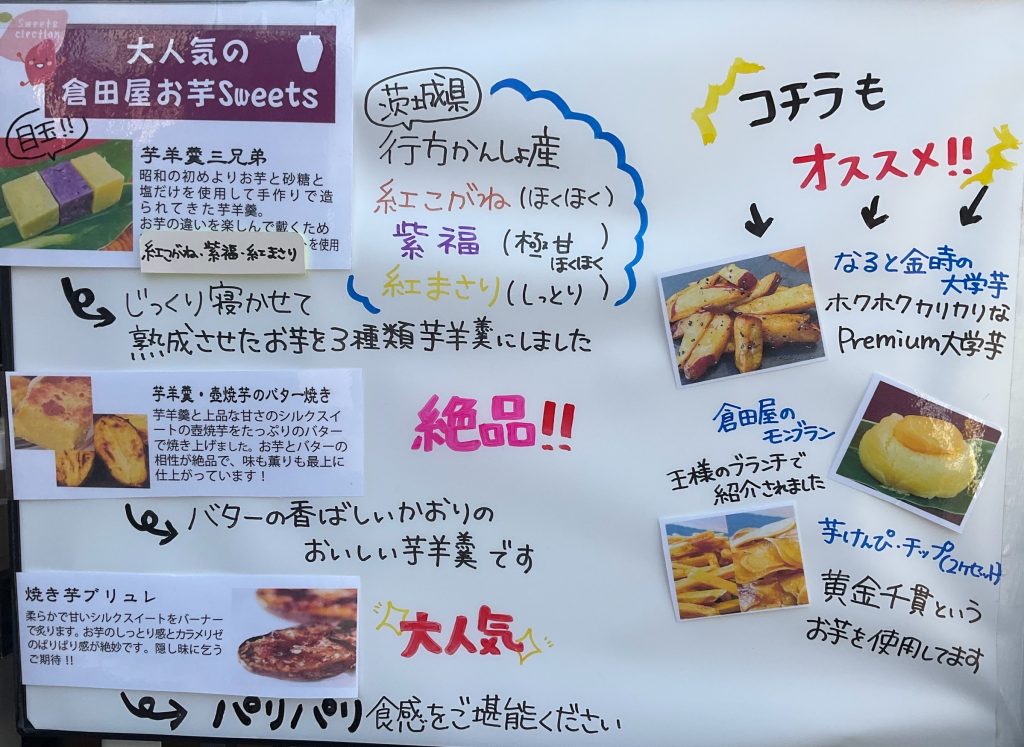 Sweets
大人気の
倉田屋お芋Sweets
目玉!!
芋羊羹三兄弟
昭和の初めよりお芋と砂糖と
塩だけを使用して手作りで造
られてきた芋羊羹。
お芋の違いを楽しんで戴くため
を使用
紅こがね・紫福・紅まさり
じっくり寝かせて
熟成させたお芋を3種類芋羊羹にしました
茨城県
行方かんしょ産
紅こがね(ほくほく)
紫福(極甘ほくほく)
紅まさり(しっとり)
芋羊羹・壺焼芋のバター焼き
芋羊羹と上品な甘さのシルクスイ
ートの壺焼芋をたっぷりのバター
で焼き上げました。お芋とバターの
相性が絶品で、味も薫りも最上に
仕上がっています！
絶品!!
バターの香ばしいかおりの
おいしい芋羊羹です
焼き芋ブリュレ
柔らかで甘いシルクスイートをバーナー
で炙ります。お芋のしっとり感とカラメリゼ
のぱりぱり感が絶妙です。隠し味に乞う
ご期待！！
大人気
パリパリ食感をご堪能ください
コチラも
オススメ!!
なると金時の
大学芋
ホクホクカリカリな
Premium大学芋
倉田屋の
モンブラン
王様のブランチで
紹介されました
芋けんぴ・チップ(2ケセット)
黄金千貫という
お芋を使用してます